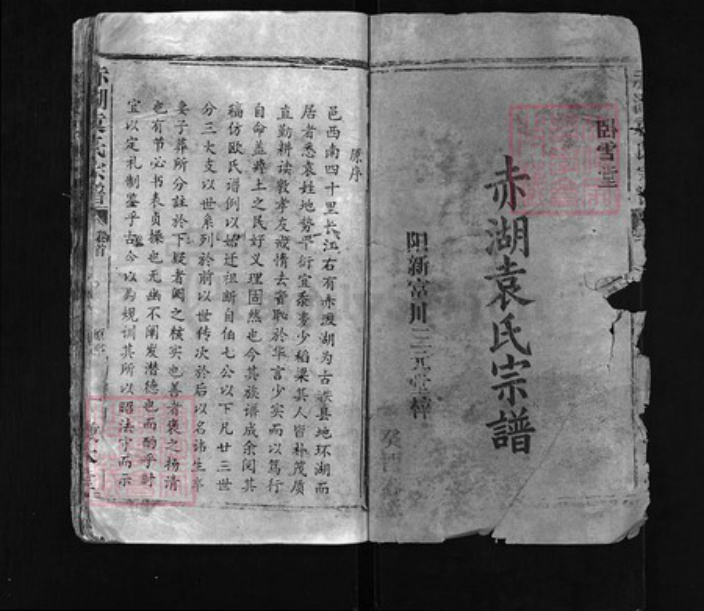 卧雪堂
赤湖袁氏宗譜
阳新富川三元堂梓
原序
邑西南四十里长江右有赤湖为古县地环湖而
居者悉袁姓地势平衍宜黍麦少稻梁其人皆朴茂质
直勤耕读敦孝友戒情去奢耻於华言少实而以笃行
自命盖瘠土之民好义理固然也今其族谱成余阅其
稿仿欧氏谱例以始迁祖断自伯七公以下凡廿三世
分三大支以世系列於前以世传次於后以名讳生卒
妻子葬所分註於下疑者阙之核实也善者褒之扬清
也有节必书表贞操也无幽不阐发潜德也而酌乎时
宜以定礼制鉴乎古今以为规训其所以昭法守而示
赤湖袁氏宗譜
卷首
原序